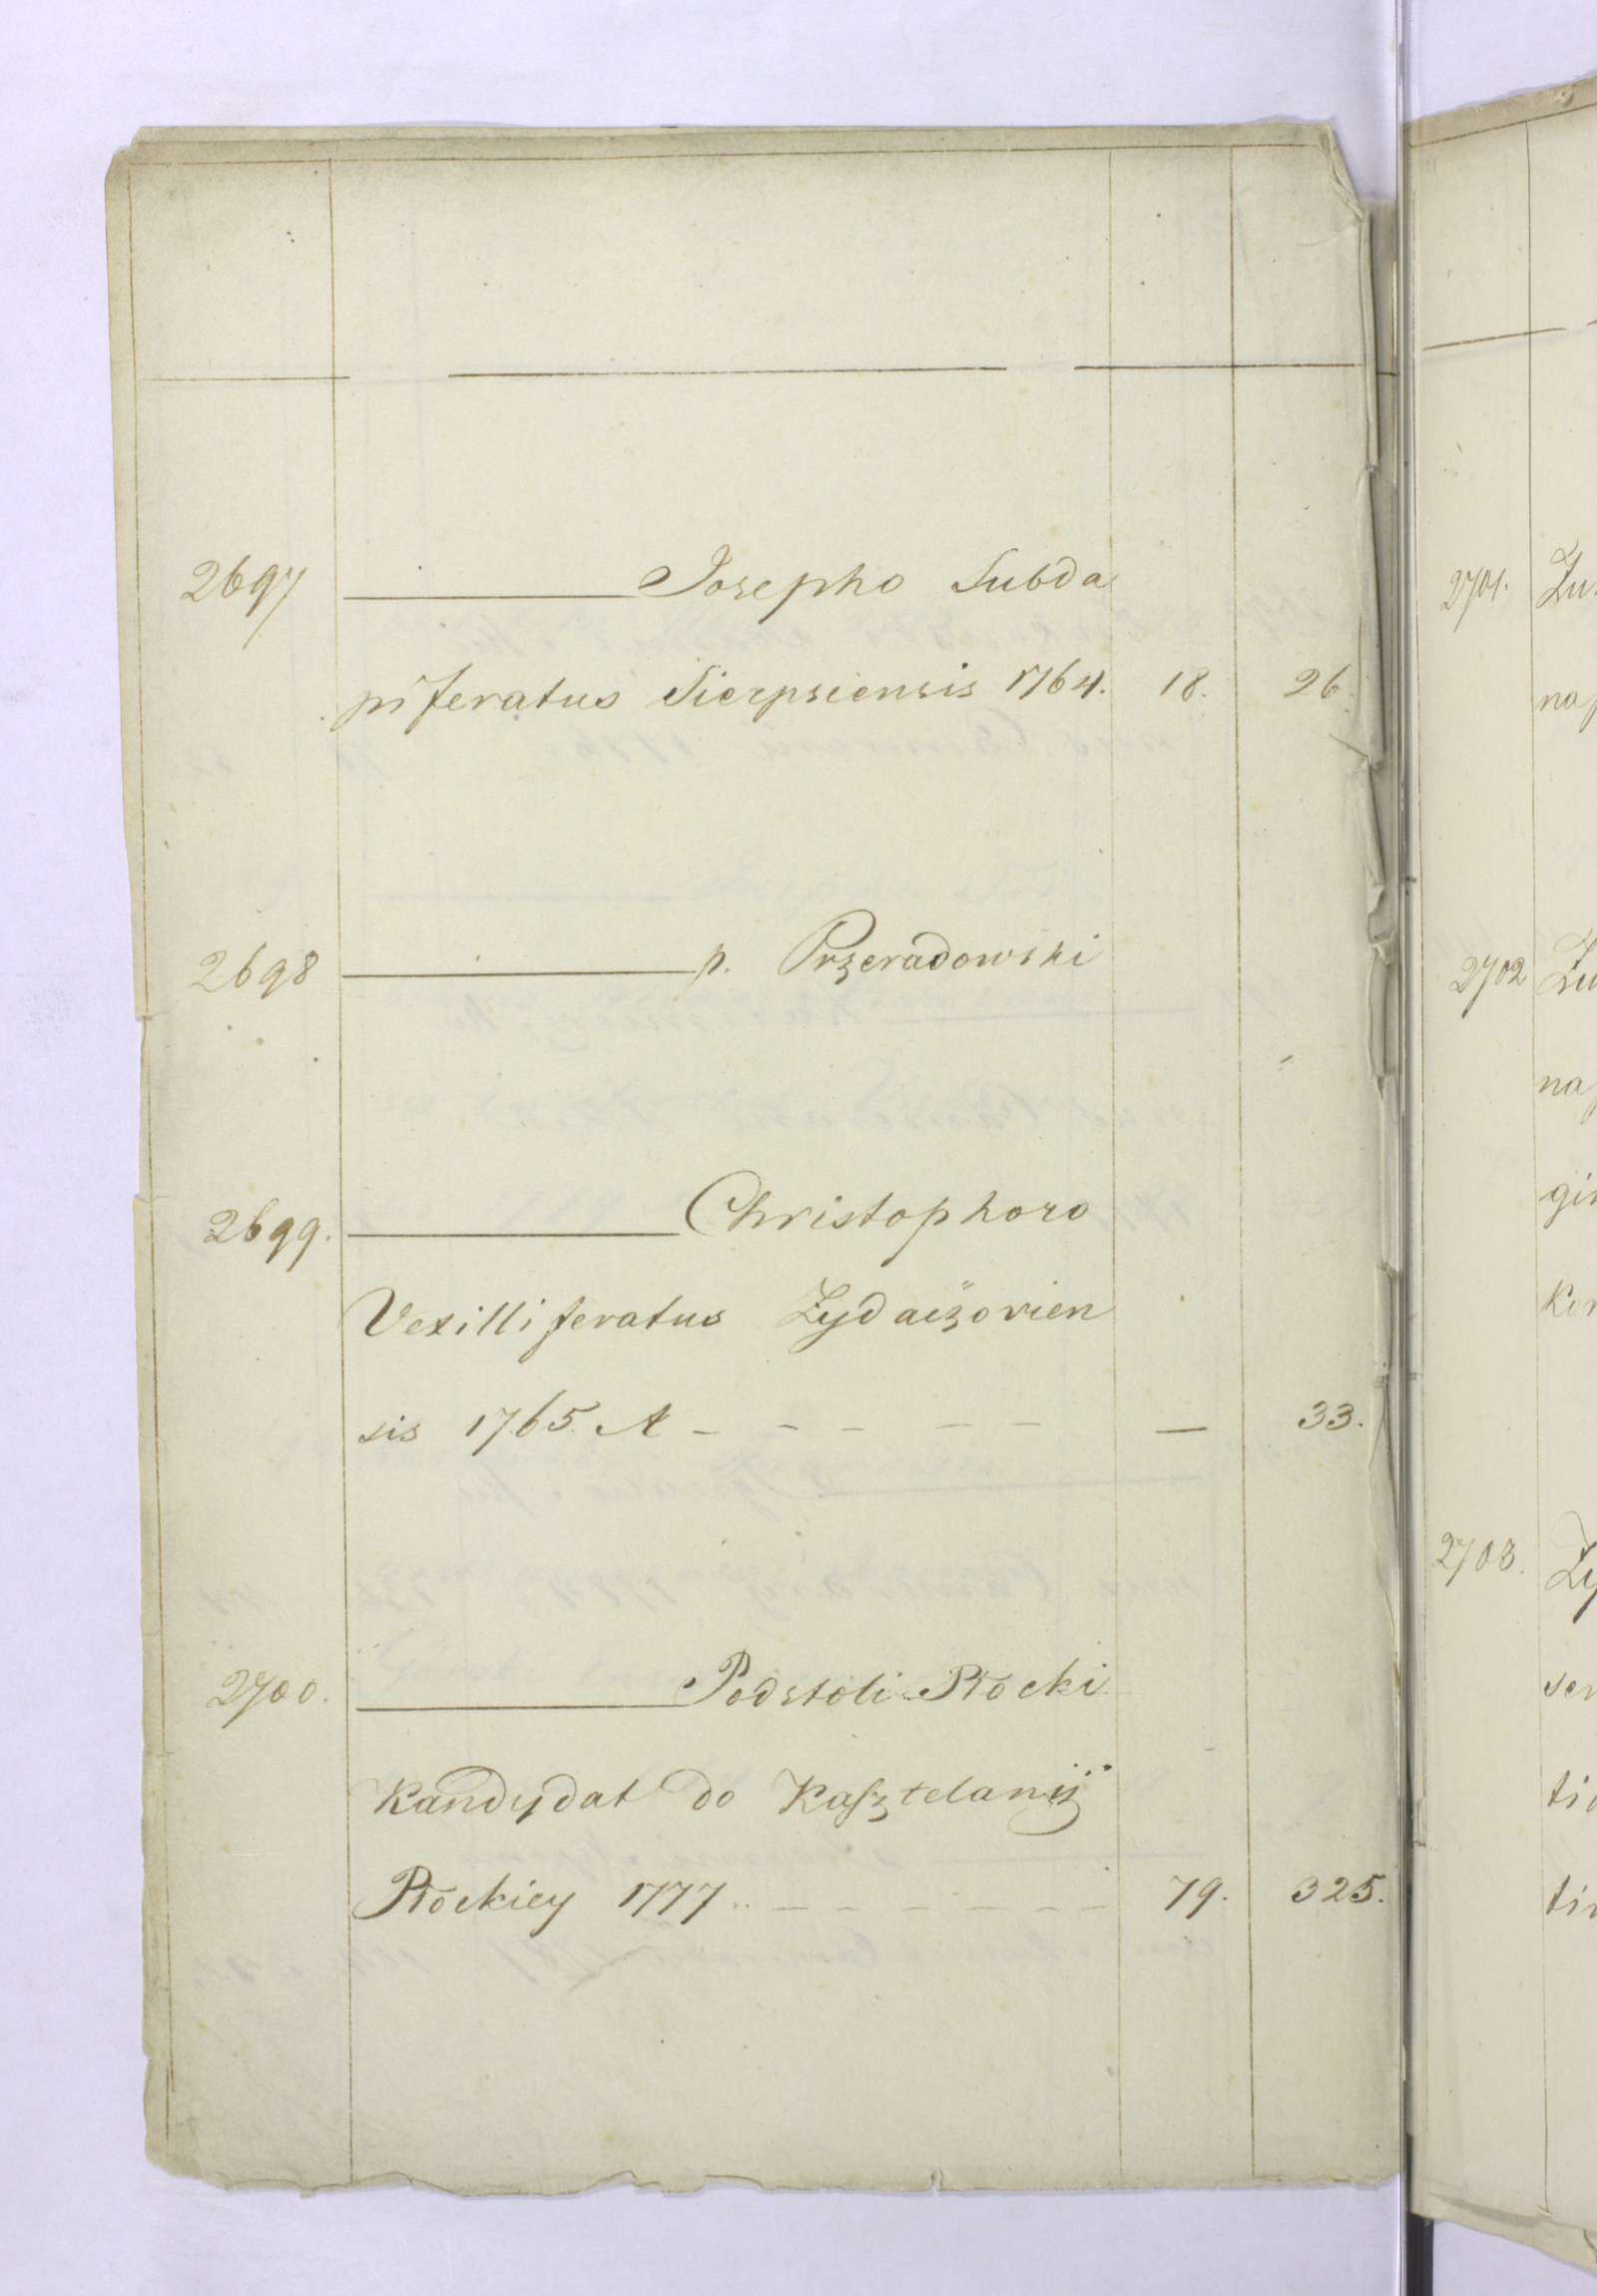 2697 ——— Josepho Subda
piferatus Sierpsiensis 1764. 18. 26.
2698 ——— p. Przeradowski
2699. ——— Christophoro
Vexilliferatus Zydaczovien
sis 1765. A - - - - - — 33.
2700. ——— Podstoli Płocki
Kandydat do Kasztelanij
Płockiey 1777 .. - - - - - - 79. 325.
2701. Zu
nap
2702 Zu
nap
gin
Kor
2703. Zy
ser
tio
tio